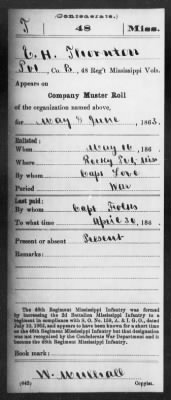 (Confederate.)
T 48 Miss.
E. H. Thornton
Pvt, Co. B, 48 Reg't Mississippi Vols.
Appears on
Company Muster Roll
of the organization named above,
for May & June, 1863.
Enlisted:
When May 16, 186 .
Where Rocky Pt, Miss
By whom Capt Love
Period War
Last paid:
By whom Capt
To what time April 30, 186 .
Present or absent Present
Remarks:
The 48th Regiment Mississippi Infantry was formed
by increasing the 2d Battalion Mississippi Infantry to a
regiment in compliance with S. O. No. , A. & I. G. O., dated
and appears to have been known for a short time
as the 48th Regiment Mississippi Infantry but that designation
was not recognized by the Confederate War Department and it
became the 48th Regiment Mississippi Infantry.
Book mark:
(642) Copyist.